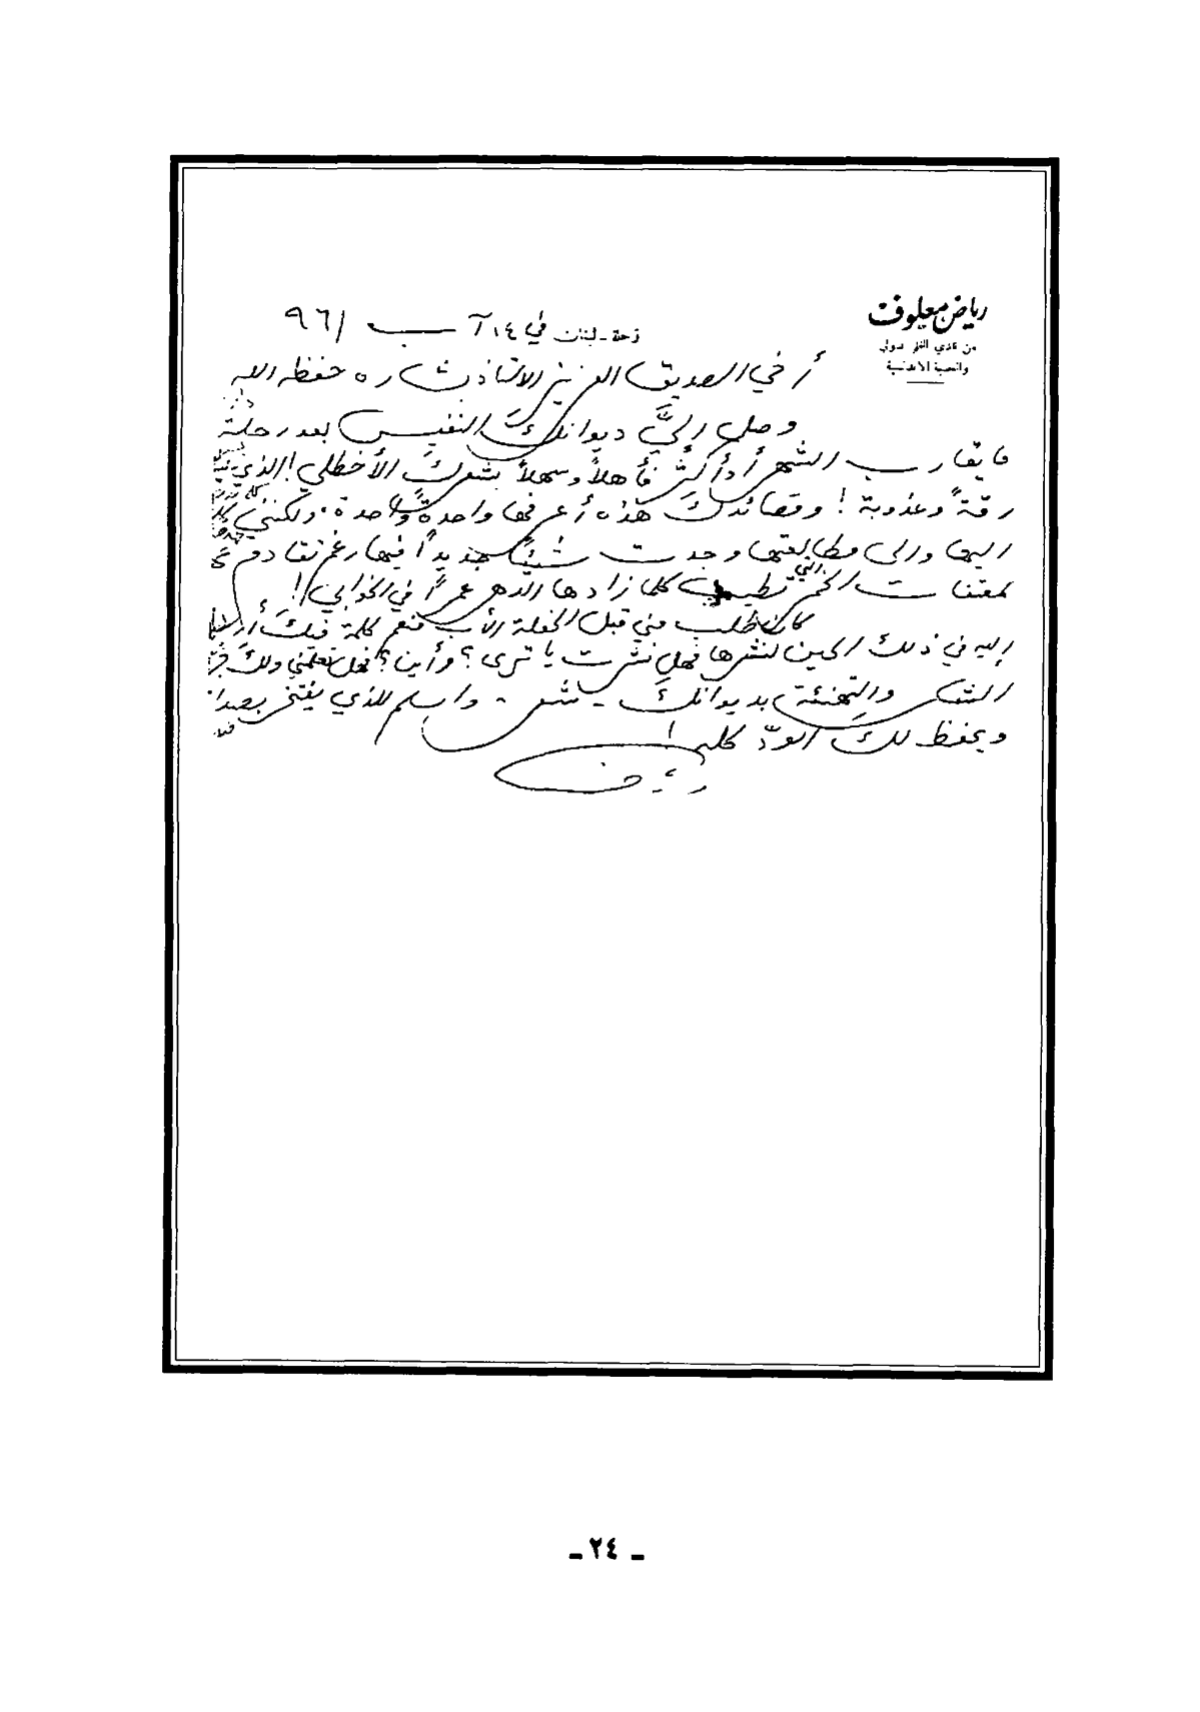 رياض معلوف
من نادي القلم الدولي
زحلة - لبنان في ١٤ آب ٩٦١/
أخي الصديق العزيز الأستاذ حفظه الله
وصل إليَّ ديوانك النفيس بعد رحلة
ما يقارب الشهر أو أكثر فأهلاً وسهلاً بشعرك الأخطلي! الذي
رقةً وعذوبة! وقصائدك هذه أعرفها واحدةً واحدة. ولكنني
إليها وإلى مطالعتها وجدت شيئاً جديداً فيها رغم تقادم
كمعتقات الخمر التي تطيب كلما زادها الدهر عمراً في الخوابي!
كان طلب مني قبل الحفلة الأب كلمة فيك
إليه في ذلك الحين لنشرها فهل نشرت يا ترى؟ وأين؟ فهل تعلمني ولك
الشكر والتهنئة بديوانك - - واسلم للذي يفتخر
ويحفظ لك الودّ كله!
رياض
ـ ٢٤ ـ